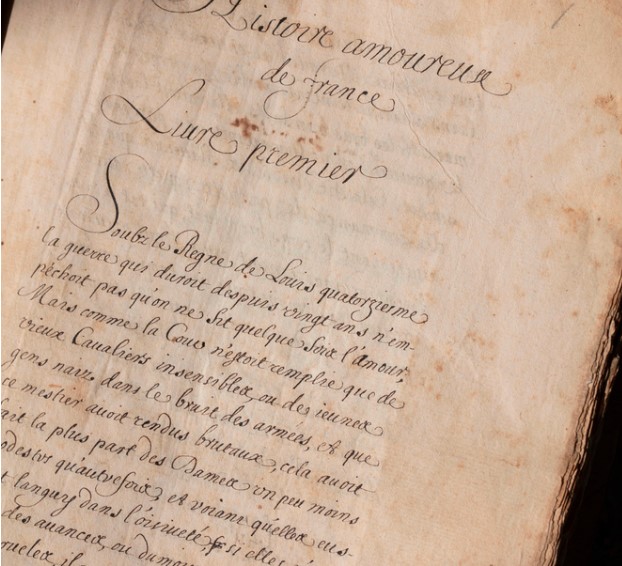 Histoire amoureuse
de france
Liure premier
Soubz le Regne de Louis quatorziesme
la guerre qui duroit despuis vingt ans n'em-
pêchoit pas qu'on ne fit quelque fois l'amour,
Mais comme la Cour n'estoit remplie que de
vieux Caualiers insensibles, ou des ieunes
gens naiz dans le bruit des armées, et que
ce mestier auoit rendus brutaux, cela auoit
fait la plus part des Dames un peu moins
modestes qu'autrefois, et voiant qu'elles eus-
languy dans l'oisiueté, si elles
des auances, ou du moins